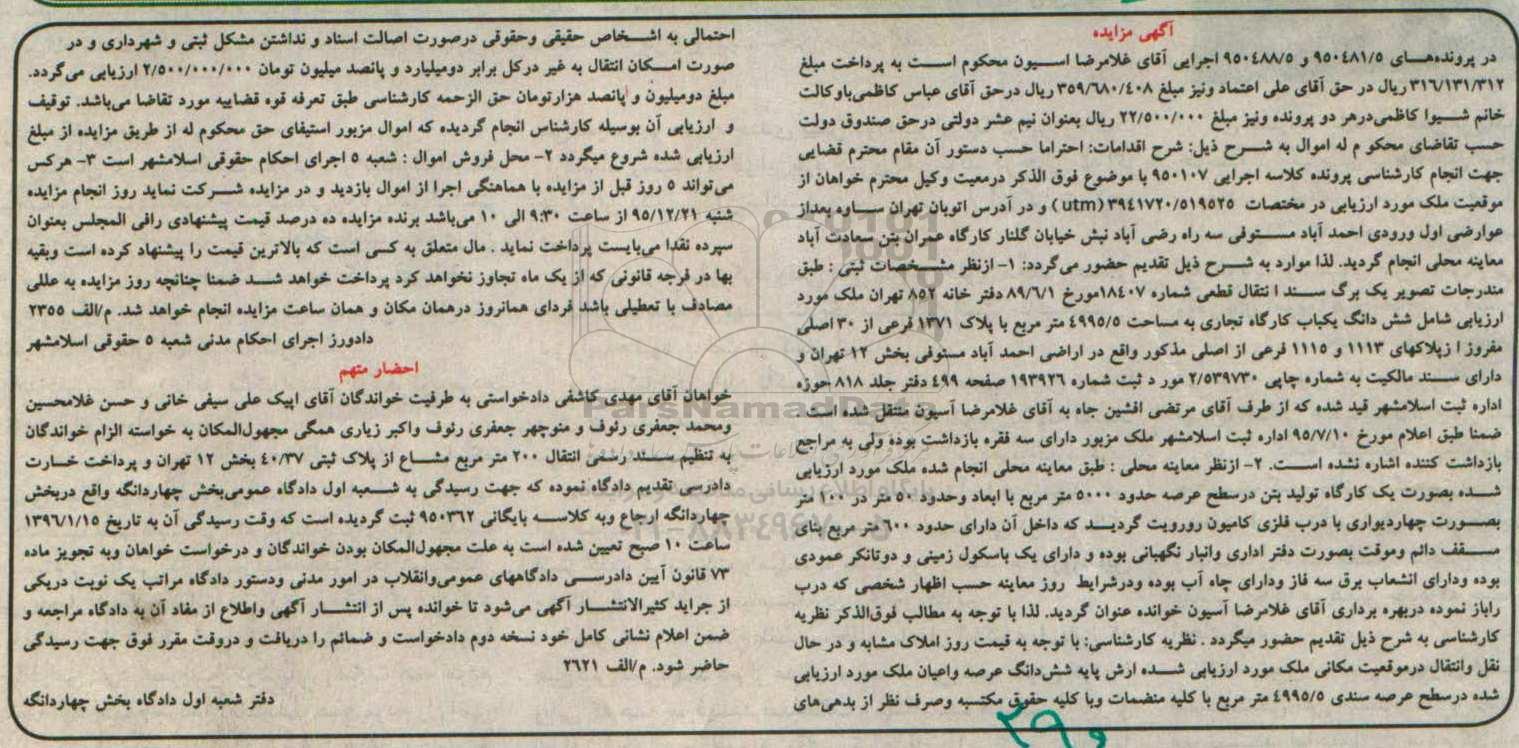 آگهی مزایده
در پرونده‌های ۹۵۰۴۸۱/۵ و ۹۵۰۴۸۸/۵ اجرایی آقای غلامرضا اسیون محکوم است به پرداخت مبلغ
۳۱۶/۱۳۱/۳۱۲ ریال در حق آقای علی اعتماد ونیز مبلغ ۳۵۹/۶۸۰/۴۰۸ ریال درحق آقای عباس کاظمی‌باوکالت
خانم شیوا کاظمی‌درهر دو پرونده ونیز مبلغ ۲۲/۵۰۰/۰۰۰ ریال بعنوان نیم عشر دولتی درحق صندوق دولت
حسب تقاضای محکو م له اموال به شرح ذیل: شرح اقدامات: احتراما حسب دستور آن مقام محترم قضایی
جهت انجام کارشناسی پرونده کلاسه اجرایی ۹۵۰۱۰۷ با موضوع فوق الذکر درمعیت وکیل محترم خواهان از
موقعیت ملک مورد ارزیابی در مختصات ۳۹٤۱۷۲۰/۵۱۹۵۲۵ (utm) و در آدرس اتوبان تهران ساوه بعداز
عوارضی اول ورودی احمد آباد مستوفی سه راه رضی آباد نبش خیابان گلنار کارگاه عمران بتن سعادت آباد
معاینه محلی انجام گردید. لذا موارد به شرح ذیل تقدیم حضور می‌گردد: ۱- ازنظر مشخصات ثبتی : طبق
مندرجات تصویر یک برگ سند ا نتقال قطعی شماره ۱۸٤۰۷مورخ ۸۹/۶/۱ دفتر خانه ۸۵۲ تهران ملک مورد
ارزیابی شامل شش دانگ یکباب کارگاه تجاری به مساحت ٤۹۹۵/۵ متر مربع با پلاک ۱۳۷۱ فرعی از ۳۰ اصلی
مفروز ا زپلاکهای ۱۱۱۳ و ۱۱۱۵ فرعی از اصلی مذکور واقع در اراضی احمد آباد مستوفی بخش ۱۲ تهران و
دارای سند مالکیت به شماره چاپی ۲/۵۳۹۷۳۰ مور د ثبت شماره ۱۹۳۹۲۶ صفحه ٤۹۹ دفتر جلد ۸۱۸ حوزه
اداره ثبت اسلامشهر قید شده که از طرف آقای مرتضی افشین جاه به آقای غلامرضا آسیون منتقل شده است.
ضمنا طبق اعلام مورخ ۹۵/۷/۱۰ اداره ثبت اسلامشهر ملک مزبور دارای سه فقره بازداشت بوده ولی به مراجع
بازداشت کننده اشاره نشده است. ۲- ازنظر معاینه محلی : طبق معاینه محلی انجام شده ملک مورد ارزیابی
شده بصورت یک کارگاه تولید بتن درسطح عرصه حدود ۵۰۰۰ متر مربع با ابعاد وحدود ۵۰ متر در ۱۰۰ متر
بصورت چهاردیواری با درب فلزی کامیون رورویت گردید که داخل آن دارای حدود ۶۰۰ متر مربع بنای
مسقف دائم وموقت بصورت دفتر اداری وانبار نگهبانی بوده و دارای یک باسکول زمینی و دوتانکر عمودی
بوده ودارای انشعاب برق سه فاز ودارای چاه آب بوده ودرشرایط روز معاینه حسب اظهار شخصی که درب
راباز نموده دربهره برداری آقای غلامرضا آسیون خوانده عنوان گردید. لذا با توجه به مطالب فوق‌الذکر نظریه
کارشناسی به شرح ذیل تقدیم حضور میگردد . نظریه کارشناسی: با توجه به قیمت روز املاک مشابه و در حال
نقل وانتقال درموقعیت مکانی ملک مورد ارزیابی شده ارش پایه شش‌دانگ عرصه واعیان ملک مورد ارزیابی
شده درسطح عرصه سندی ٤۹۹۵/۵ متر مربع با کلیه منضمات وبا کلیه حقوق مکتسبه وصرف نظر از بدهی‌های
احتمالی به اشخاص حقیقی وحقوقی درصورت اصالت اسناد و نداشتن مشکل ثبتی و شهرداری و در
صورت امکان انتقال به غیر درکل برابر دومیلیارد و پانصد میلیون تومان ۲/۵۰۰/۰۰۰/۰۰۰ ارزیابی می‌گردد.
مبلغ دومیلیون و پانصد هزارتومان حق الزحمه کارشناسی طبق تعرفه قوه قضاییه مورد تقاضا می‌باشد. توقیف
و ارزیابی آن بوسیله کارشناس انجام گردیده که اموال مزبور استیفای حق محکوم له از طریق مزایده از مبلغ
ارزیابی شده شروع میگردد ۲- محل فروش اموال : شعبه ۵ اجرای احکام حقوقی اسلامشهر است ۳- هرکس
می‌تواند ۵ روز قبل از مزایده با هماهنگی اجرا از اموال بازدید و در مزایده شرکت نماید روز انجام مزایده
شنبه ۹۵/۱۲/۲۱ از ساعت ۹:۳۰ الی ۱۰ می‌باشد برنده مزایده ده درصد قیمت پیشنهادی رافی المجلس بعنوان
سپرده نقدا می‌بایست پرداخت نماید . مال متعلق به کسی است که بالاترین قیمت را پیشنهاد کرده است وبقیه
بها در فرجه قانونی که از یک ماه تجاوز نخواهد کرد پرداخت خواهد شد ضمنا چنانچه روز مزایده به عللی
مصادف با تعطیلی باشد فردای همانروز درهمان مکان و همان ساعت مزایده انجام خواهد شد. م/الف ۲۳۵۵
دادورز اجرای احکام مدنی شعبه ۵ حقوقی اسلامشهر
احضار متهم
خواهان آقای مهدی کاشفی دادخواستی به طرفیت خواندگان آقای اپیک علی سیفی خانی و حسن غلامحسین
ومحمد جعفری رئوف و منوچهر جعفری رئوف واکبر زیاری همگی مجهول‌المکان به خواسته الزام خواندگان
به تنظیم سند رسمی انتقال ۲۰۰ متر مربع مشاع از پلاک ثبتی ٤۰/۳۷ بخش ۱۲ تهران و پرداخت خسارت
دادرسی تقدیم دادگاه نموده که جهت رسیدگی به شعبه اول دادگاه عمومی‌بخش چهاردانگه واقع دربخش
چهاردانگه ارجاع وبه کلاسه بایگانی ۹۵۰۳۶۲ ثبت گردیده است که وقت رسیدگی آن به تاریخ ۱۳۹۶/۱/۱۵
ساعت ۱۰ صبح تعیین شده است به علت مجهول‌المکان بودن خواندگان و درخواست خواهان وبه تجویز ماده
۷۳ قانون آیین دادرسی دادگاههای عمومی‌وانقلاب در امور مدنی ودستور دادگاه مراتب یک نوبت دریکی
از جراید کثیرالانتشار آگهی می‌شود تا خوانده پس از انتشار آگهی واطلاع از مفاد آن به دادگاه مراجعه و
ضمن اعلام نشانی کامل خود نسخه دوم دادخواست و ضمائم را دریافت و دروقت مقرر فوق جهت رسیدگی
حاضر شود. م/الف ۲۶۲۱
دفتر شعبه اول دادگاه بخش چهاردانگه
ParsNamadData